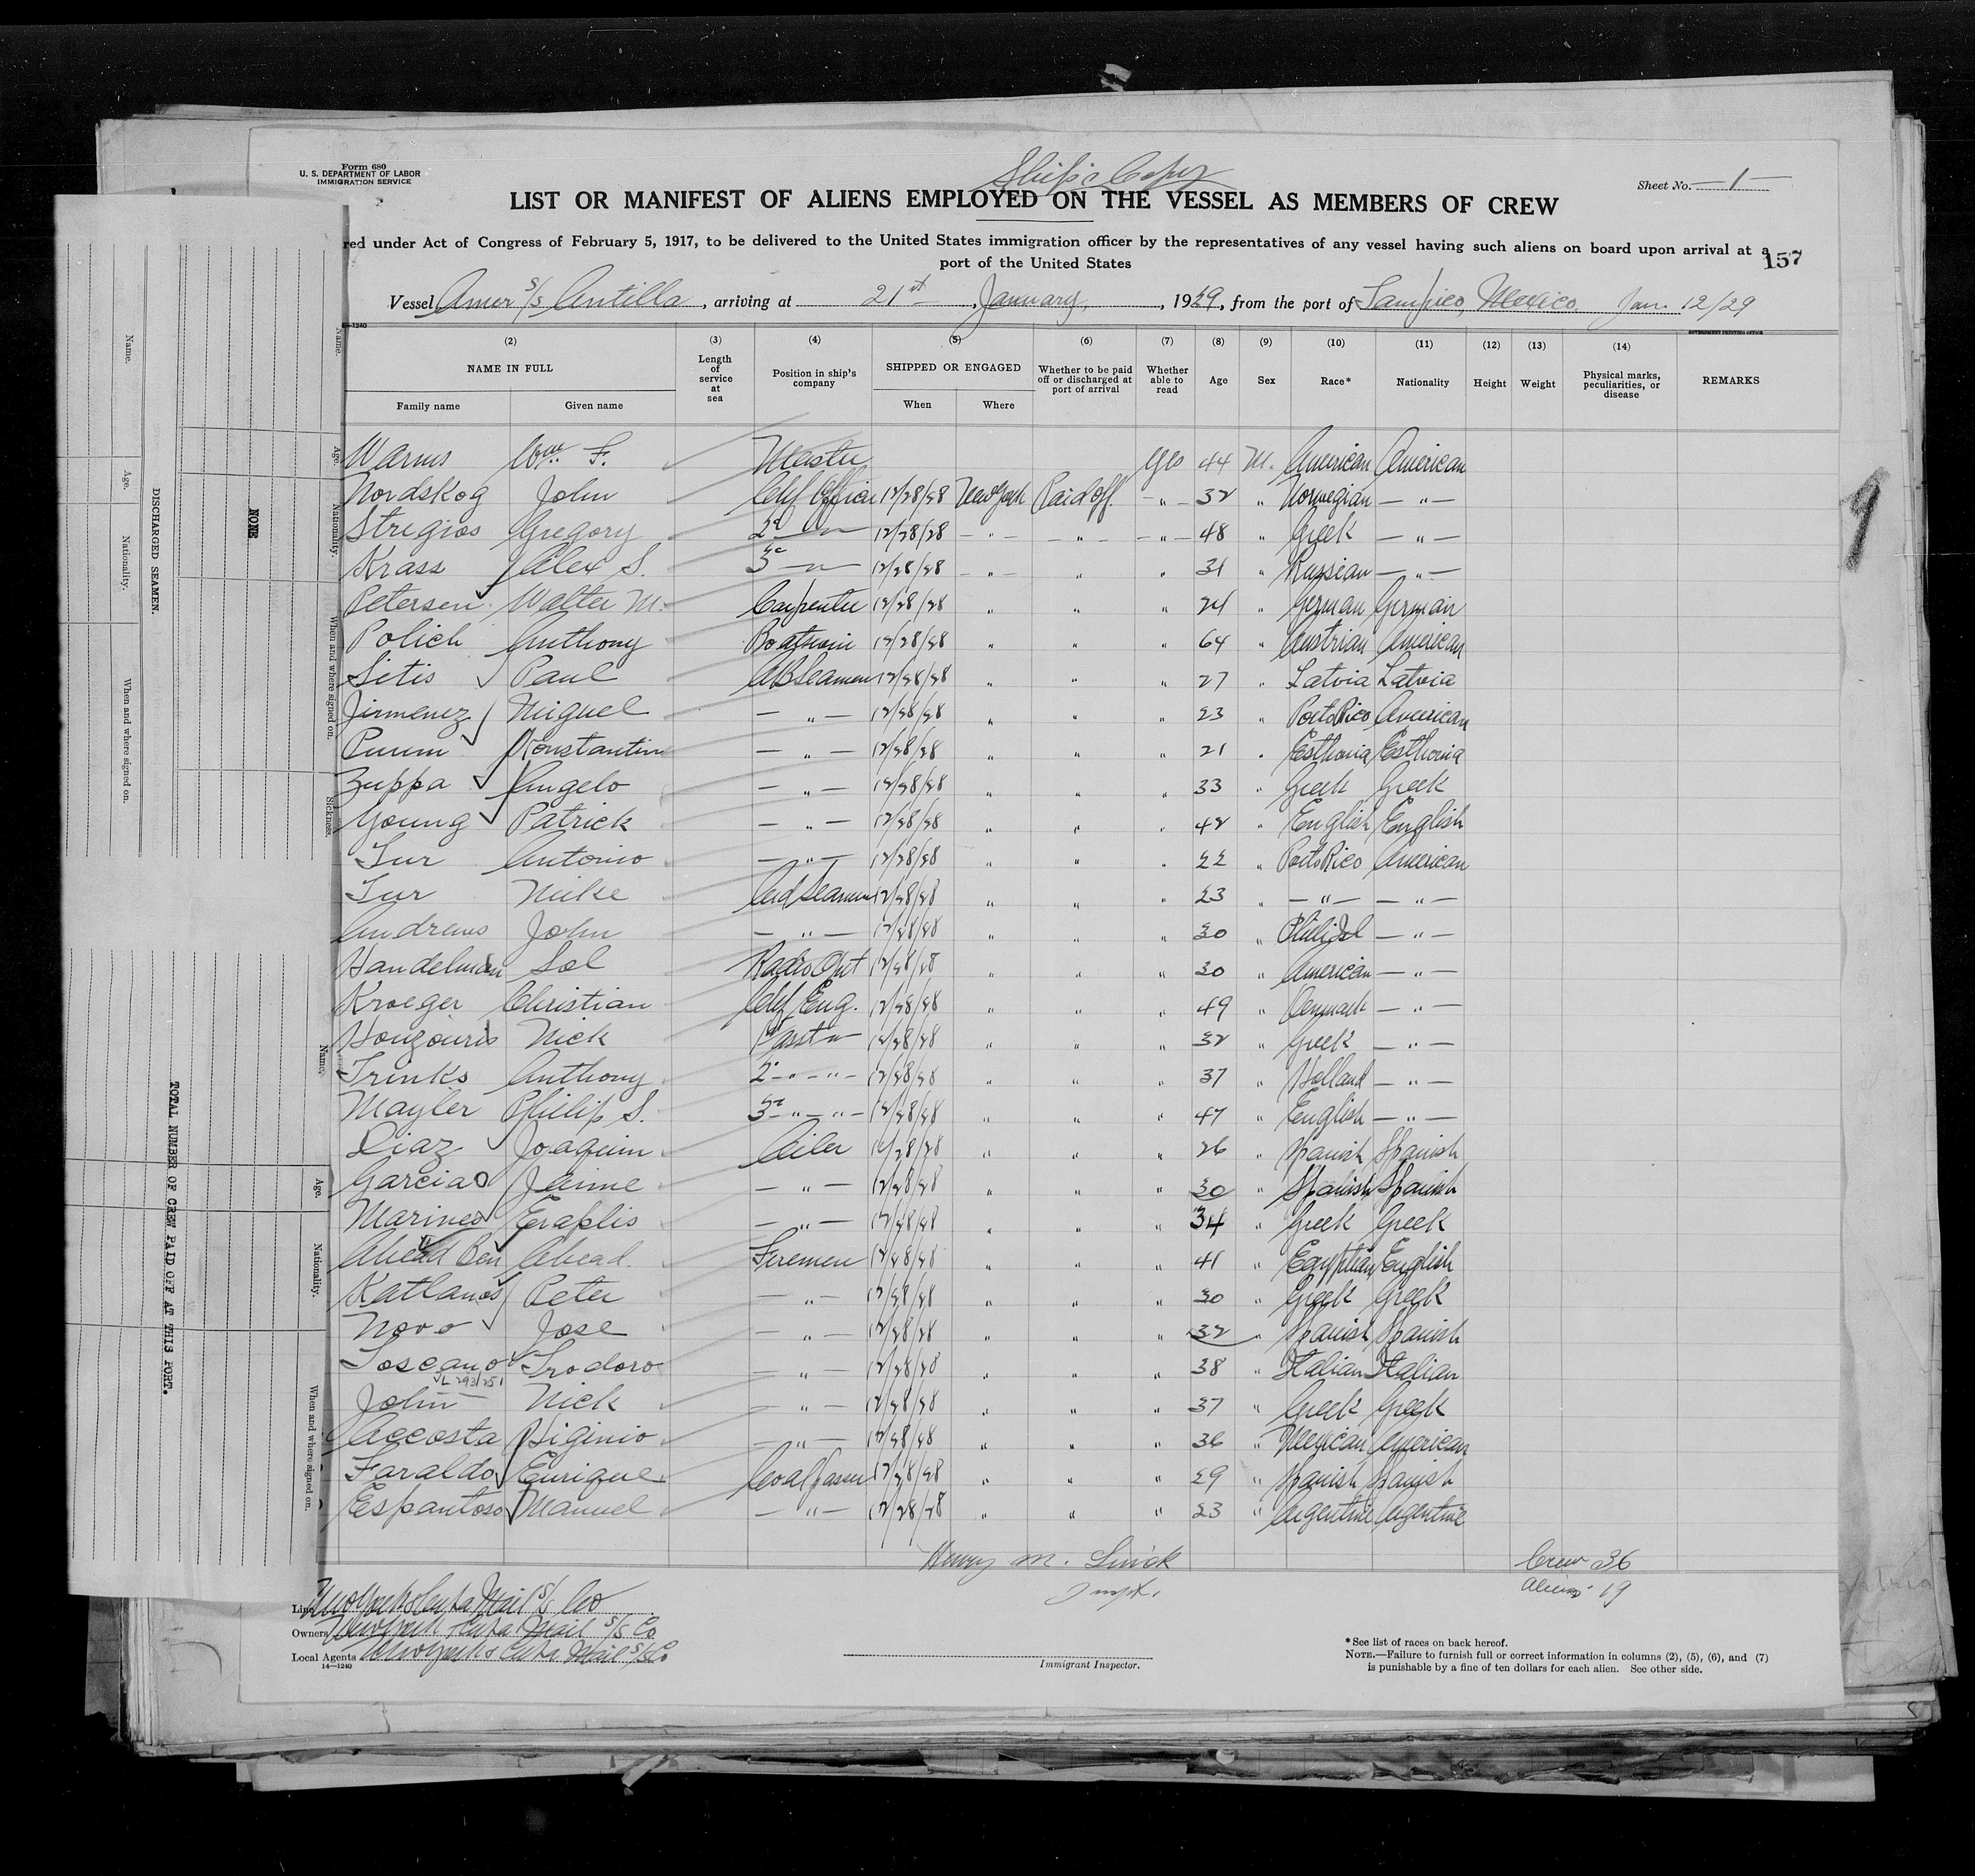 Form 680
U. S. DEPARTMENT OF LABOR
IMMIGRATION SERVICE
Ship's Copy
Sheet No. —1—
LIST OR MANIFEST OF ALIENS EMPLOYED ON THE VESSEL AS MEMBERS OF CREW
red under Act of Congress of February 5, 1917, to be delivered to the United States immigration officer by the representatives of any vessel having such aliens on board upon arrival at a
port of the United States
157
Vessel Amer S/S Antilla, arriving at 21st, January, 1929, from the port of Tampico, Mexico. Jan. 12/29
14—1240
(2) (3) (4) (5) (6) (7) (8) (9) (10) (11) (12) (13) (14)
NAME IN FULL Length of service at sea Position in ship's company SHIPPED OR ENGAGED Whether to be paid off or discharged at port of arrival Whether able to read Age Sex Race* Nationality Height Weight Physical marks, peculiarities, or disease REMARKS
Family name Given name When Where
Warms Wm. F. Master Yes 44 M. American American
Nordskog John Chf Officer 12/28/28 New York Paid off — " — 32 " Norwegian — " —
Stregios Gregory 2d — " — 12/28/28 — " — — " — — " — 48 " Greek — " —
Krass Alex S. 3d — " — 12/28/28 — " — " " 31 " Russian — " —
Petersen Walter M. Carpenter 12/28/28 " " " 24 " German German
Polich Anthony Boatswain 12/28/28 " " " 64 " Austrian American
Sitis Paul AB Seamen 12/28/28 " " " 27 " Latvia Latvia
Jirmenez Miguel — " — 12/28/28 " " " 23 " Porto Rico American
Puum Konstantin — " — 12/28/28 " " " 21 " Esthonia Esthonia
Zuppa Angelo — " — 12/28/28 " " " 33 " Greek Greek
Young Patrick — " — 12/28/28 " " " 42 " English English
Tur Antonio — " — 12/28/28 " " " 22 " Porto Rico American
Tur Mike Ord Seamen 12/28/28 " " " 23 " — " — — " —
Andrews John — " — 12/28/28 " " " 30 " — " —
Handelman Sol Radio Opt 12/28/28 " " " 30 " American — " —
Kroeger Christian Chf Eng. 12/28/28 " " " 49 " Denmark — " —
Houzouris Nick 1st asst " 12/28/28 " " " 32 " Greek — " —
Trinks Anthony 2d — " — " — 12/28/28 " " " 37 " Holland — " —
Mayler Philip S. 3d — " — " — 12/28/28 " " " 47 " English — " —
Diaz Joaquim Oiler 12/28/28 " " " 26 " Spanish Spanish
Garcia Jaime — " — 12/28/28 " " " 30 " Spanish Spanish
Marinos Eraplis — " — 12/28/28 " " " 34 " Greek Greek
Ahead Ben Ahead. Firemen 12/28/28 " " " 41 " Egyptian English
Katlanos Peter — " — 12/28/28 " " " 30 " Greek Greek
Novo Jose — " — 12/28/28 " " " 32 " Spanish Spanish
Toscano Trodoro — " — 12/28/28 " " " 38 " Italian Italian
L 293/251
John Nick — " — 12/28/28 " " " 37 " Greek Greek
Accosta Higinio — " — 12/28/28 " " " 36 " Mexican American
Faraldo Enrique Coal passer 12/28/28 " " " 29 " Spanish Spanish
Espantoso Manuel — " — 12/28/28 " " " 23 " Argentine Argentine
Henry M.
Inspt.
Crew 36
Aliens 19
Line New York & Cuba Mail S/S Co
Owners New York & Cuba Mail S/S Co
Local Agents New York & Cuba Mail S/S Co
14—1240
Immigrant Inspector.
*See list of races on back hereof.
NOTE.—Failure to furnish full or correct information in columns (2), (5), (6), and (7)
is punishable by a fine of ten dollars for each alien. See other side.
9
Name.
Age.
Nationality.
When and where signed on.
DISCHARGED SEAMEN
NONE
Name.
Age.
Nationality.
When and where signed on.
Sickness.
TOTAL NUMBER OF CREW PAID OFF AT THIS PORT.
Name.
Age.
Nationality.
When and where signed on.